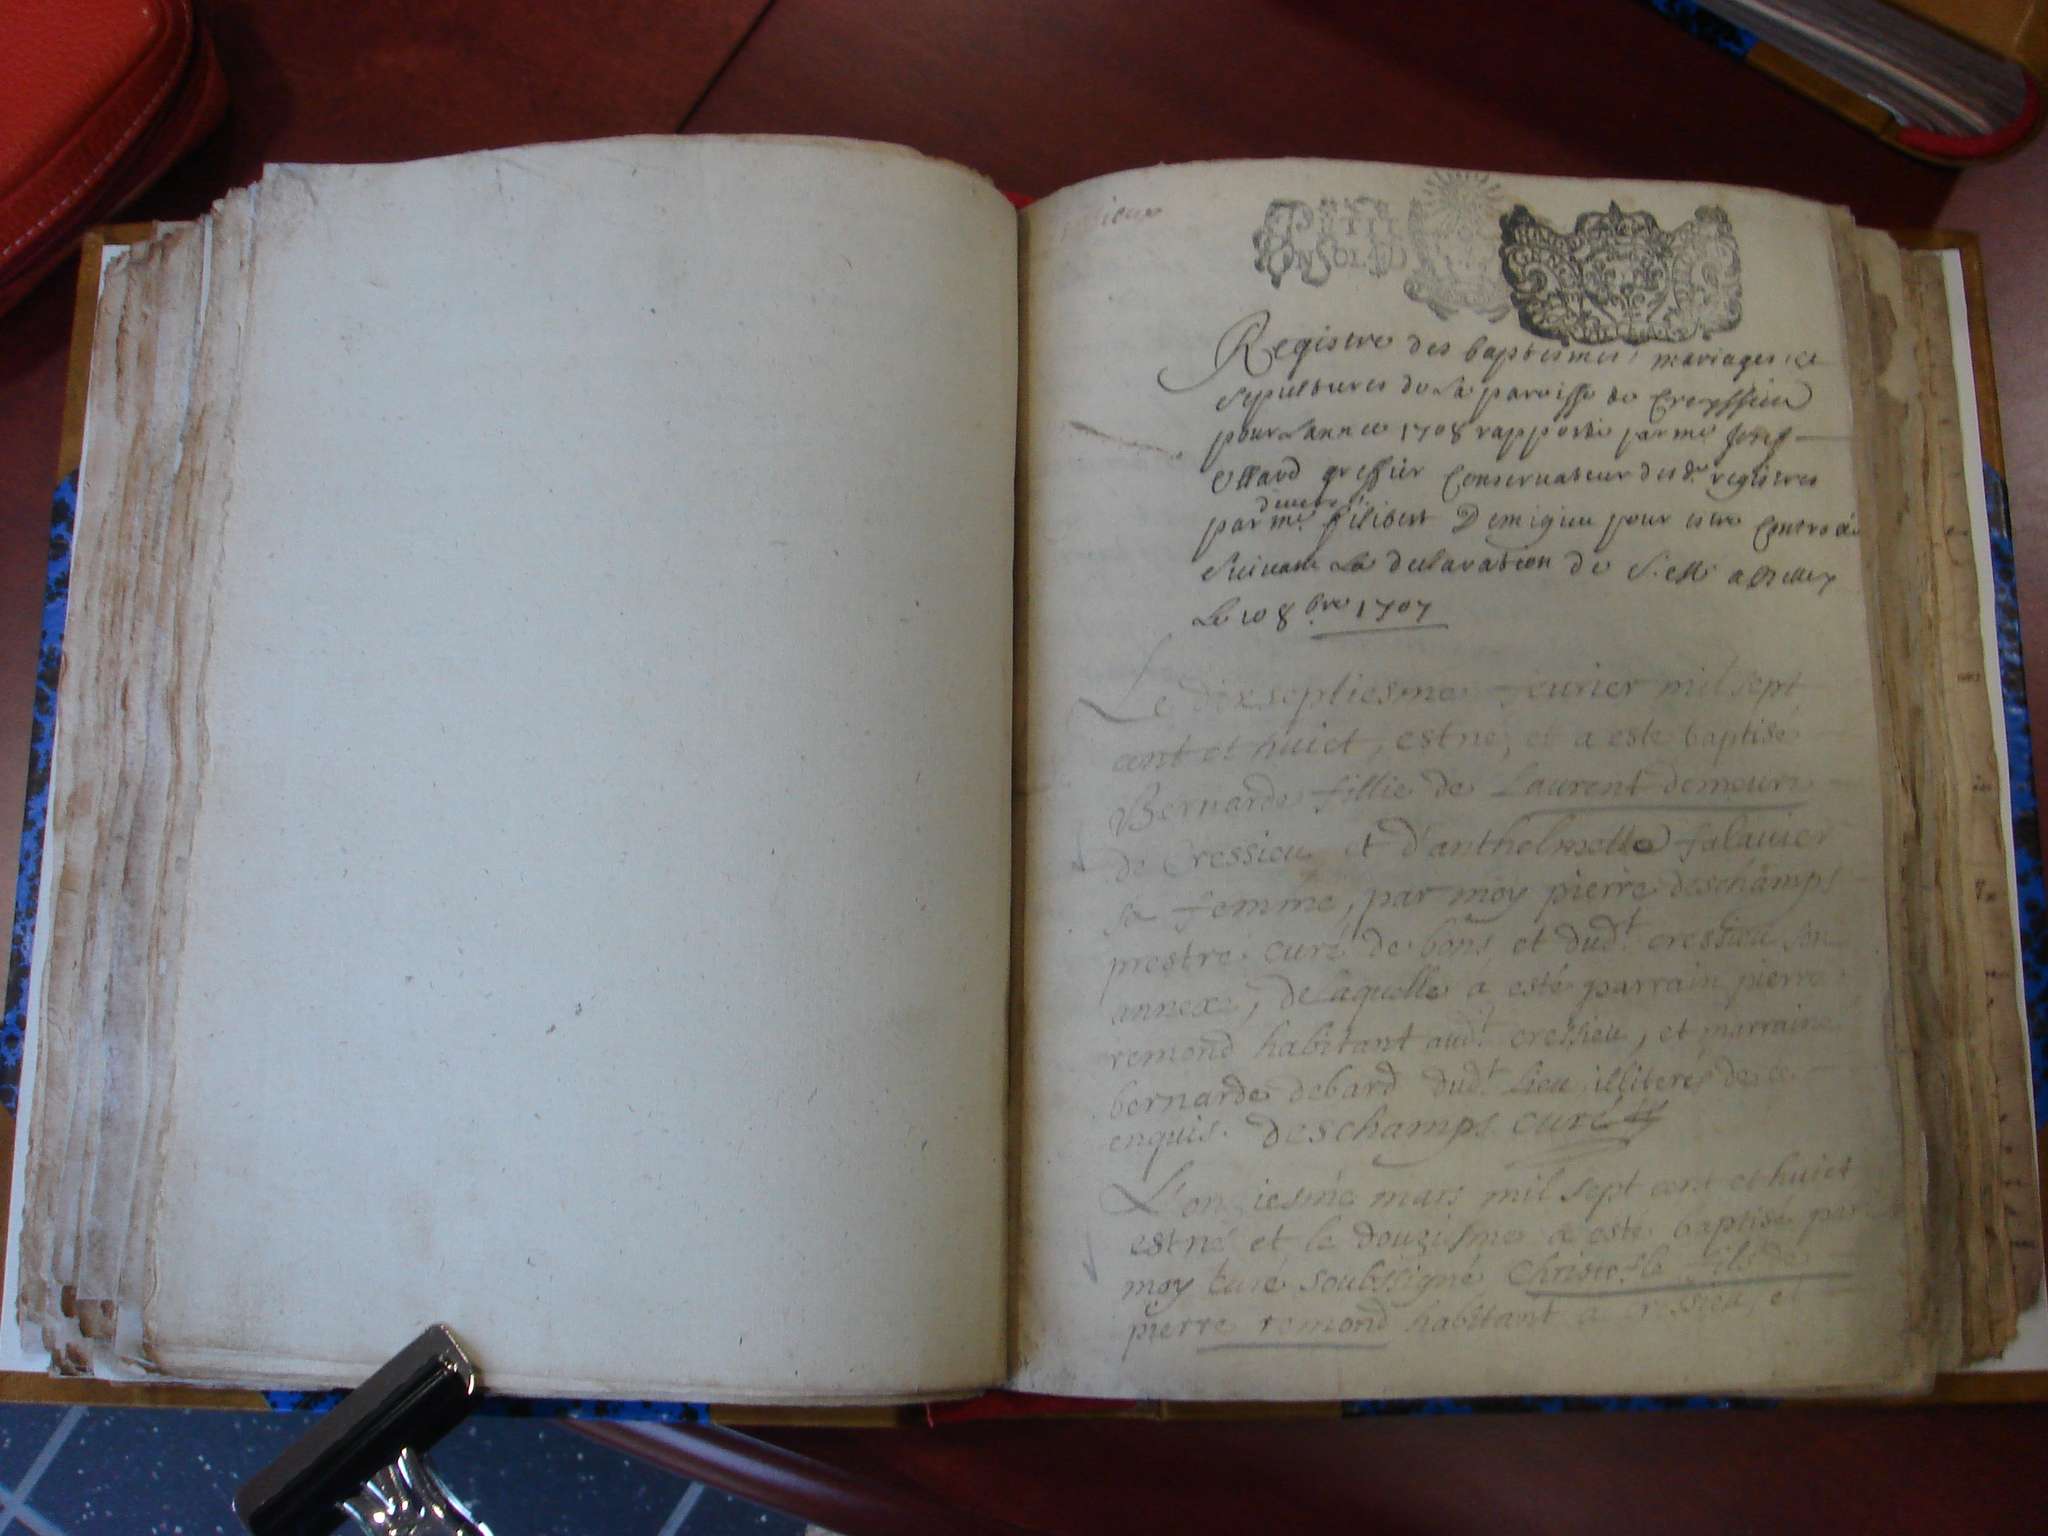 Registre des baptesmes, mariages, et
sepultures de La paroisse de Creyssieu
pour Lannee 1708 rapporté par me
greffier Conservateur desd. registres
par me filibert Demigieu pour estre
suivant La declaration de
Le 10 8bre 1707
Le dixseptiesme feurier mil sept
cent et huict, est né, et a este baptisé
Bernarde fillie de Laurent demouri
de Cressieu et d'anthelmette falauier
sa femme, par moy pierre deschamps
prestre curé de bons, et dudt cressieu son
annexe, de laquelle a esté parrain pierre
remond habitant audt cressieu, et marraine
bernarde debard dudt Lieu illiterés de ce
enquis. Deschamps curé
L'onziesme mars mil sept cent et huict
est né et le douziesme a esté baptisé par
moy curé soubssigné Christofle fils de
pierre remond habitant a cressieu, et